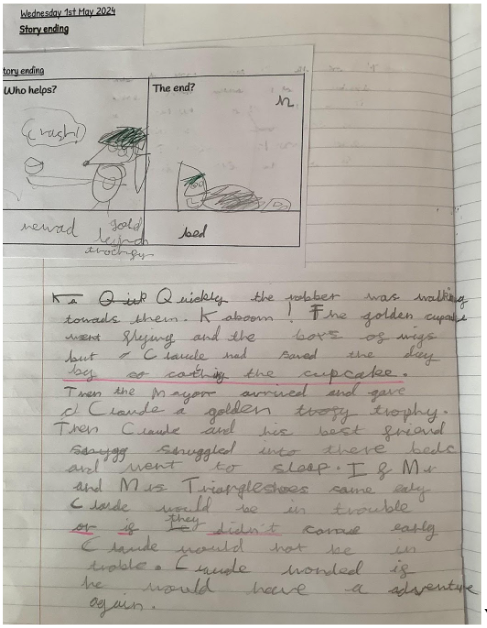 Wednesday 1st May 2024
Story ending
tory ending
Who helps?
The end?
Crash!
reward gold
bed
Quickly the robber was walking
towads them. Kaboom! The golden cupcake
went flying and the boxs of wigs
but Claude had saved the day
by so cathing the cupcake.
Then the Mayor arrived and gave
Claude a golden trophy.
Then Claude and his best friend
snuggled into there beds
and went to sleep. If Mr
and Mrs Triangleshoes came ealy
Claude would be in trouble
or if they didn't come early
Claude would not be in
troble. Claude wonded if
he would have a adventure
again.